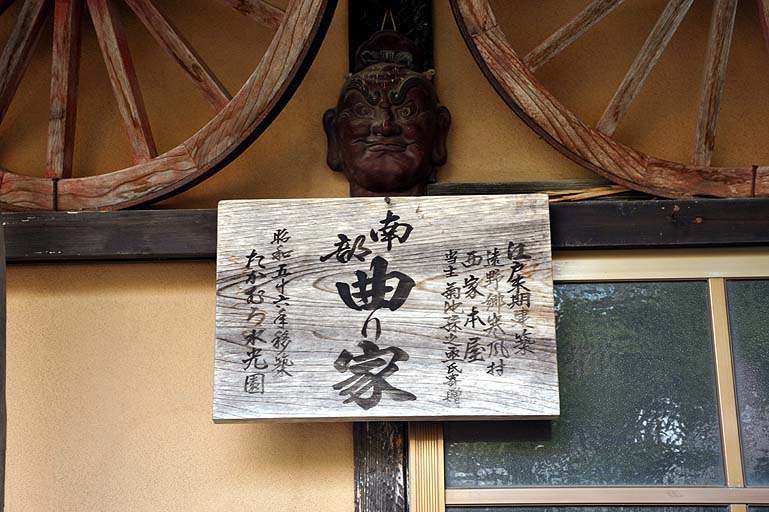 江戸末期建築
遠野郷山崎村
西家本屋
当主菊池
氏寄贈
南部
曲り家
昭和五十六年移築
たかむろ水光園